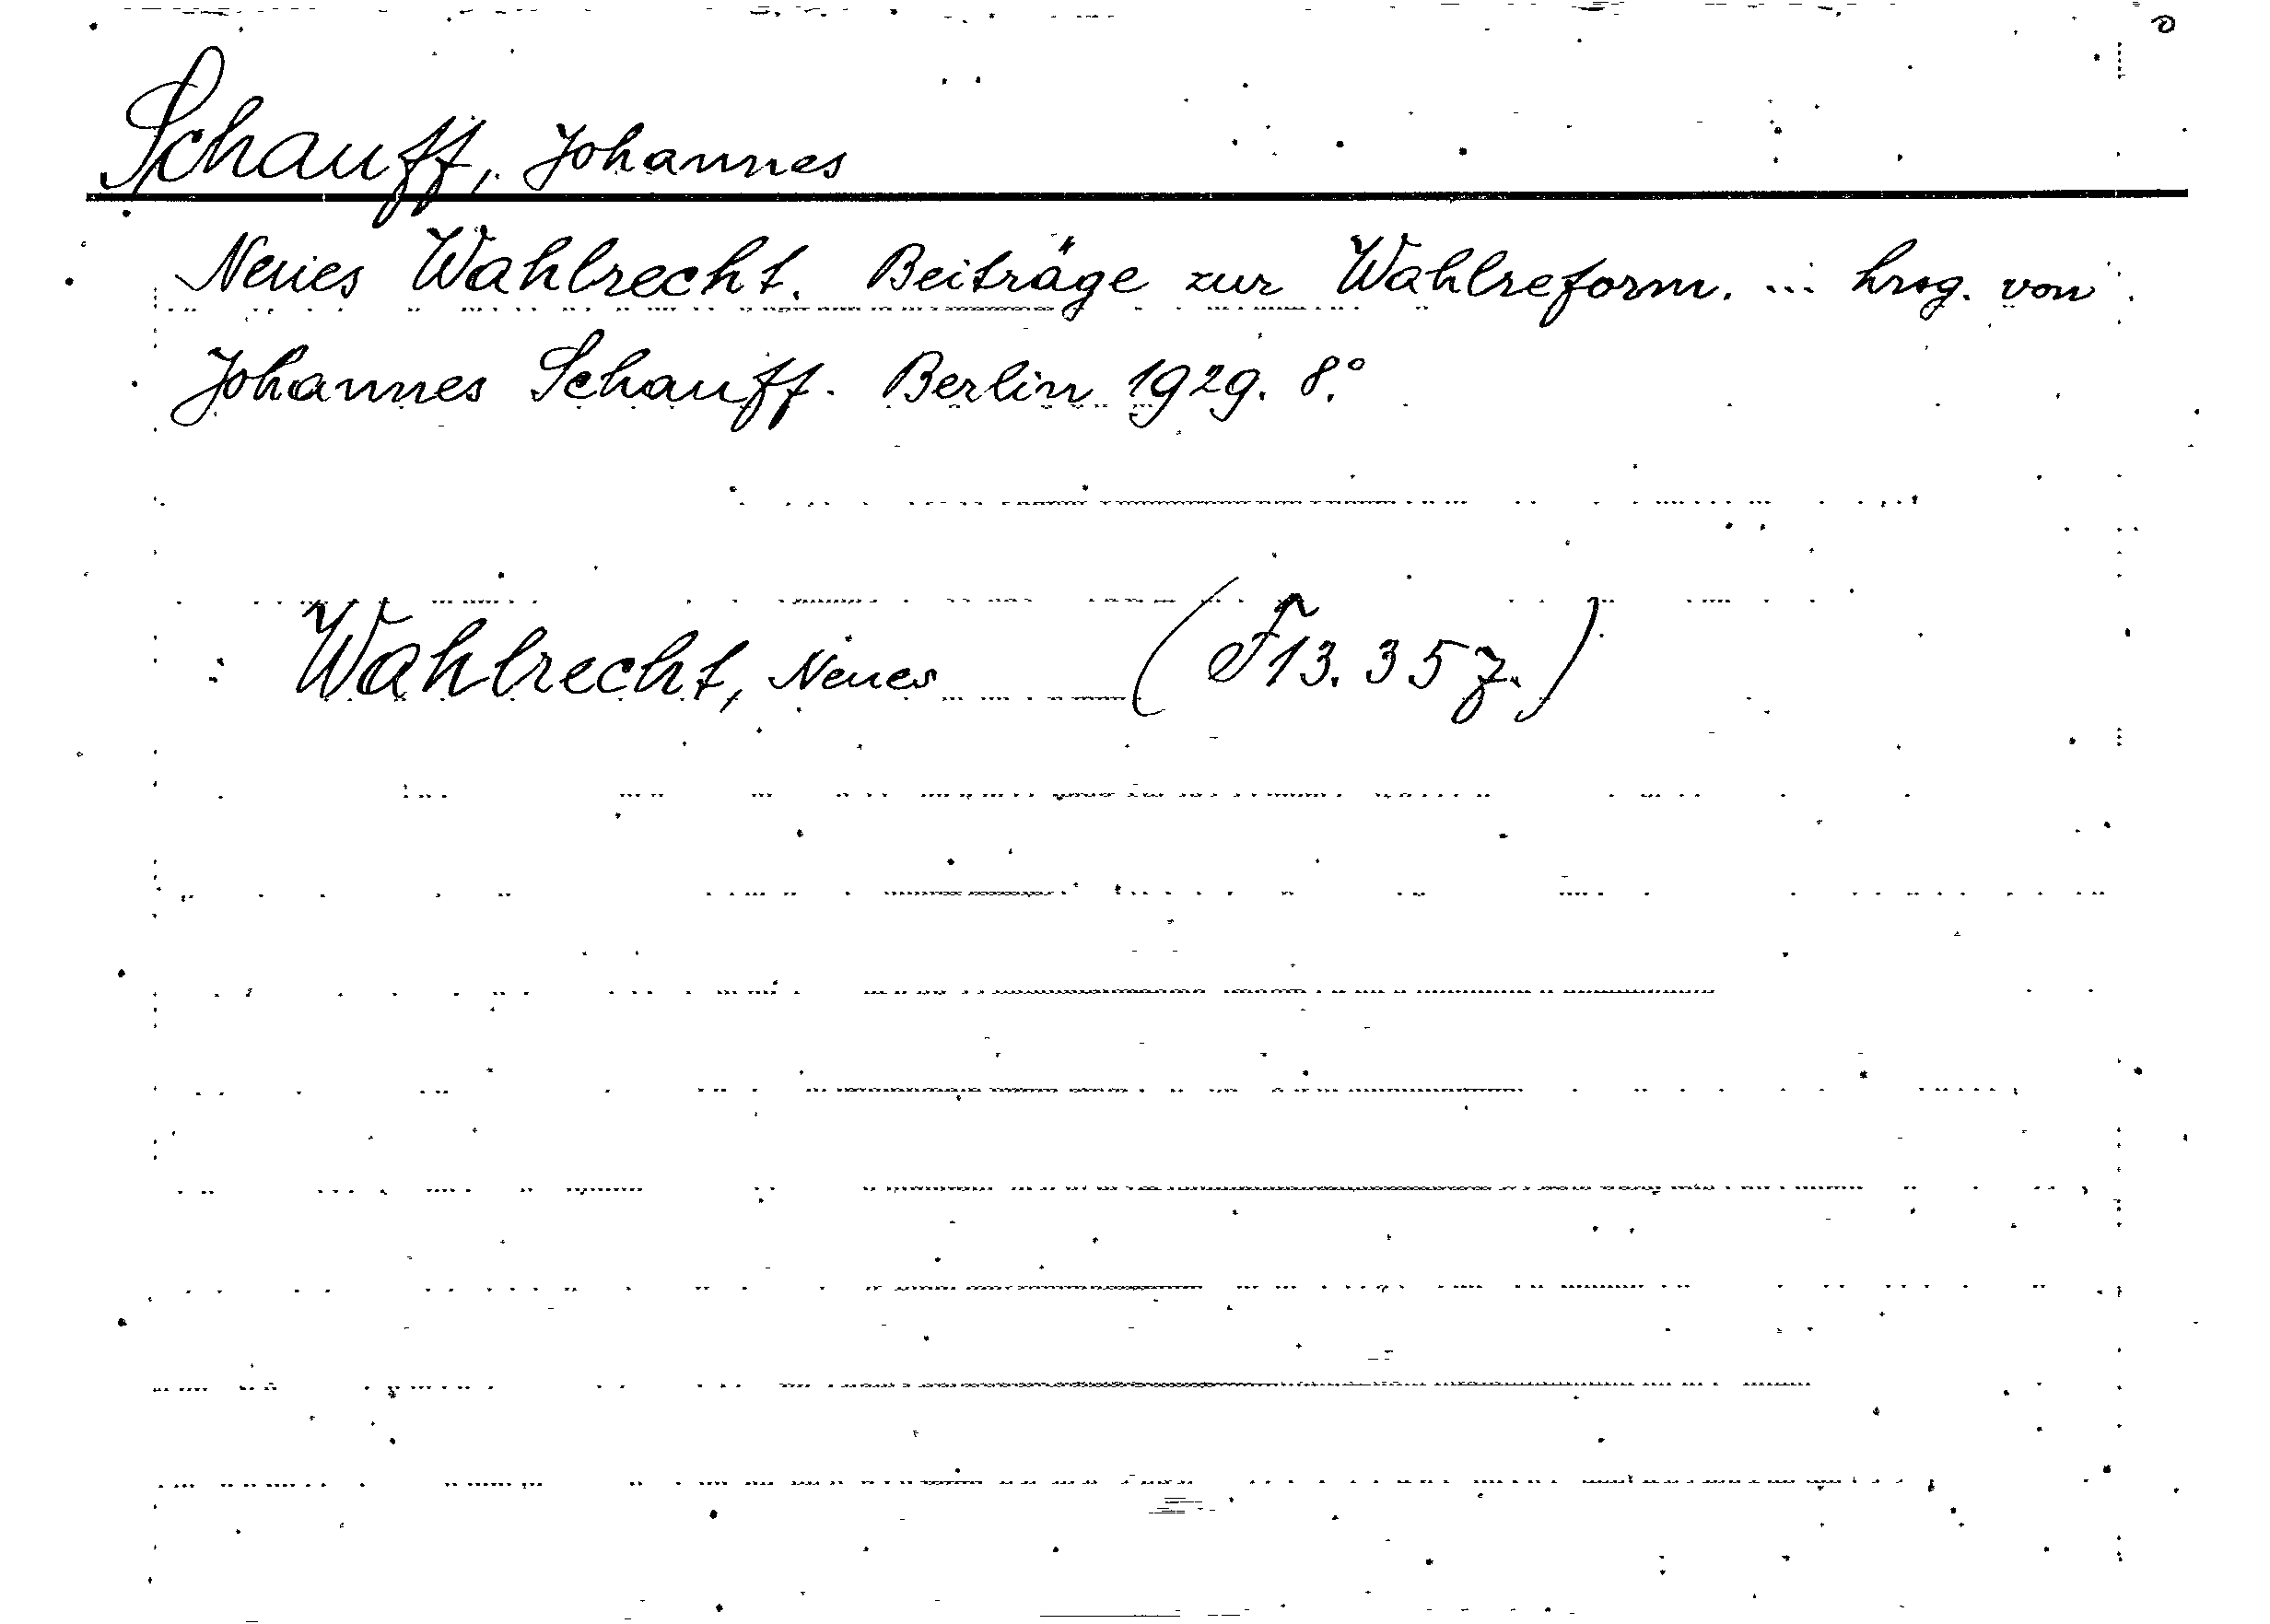 Schauff, Johannes
Neues Wahlrecht. Beiträge zur Wahlreform. ... hrsg. von
Johannes Schauff. Berlin 1929. 8.°
Wahlrecht, Neues (F13.35z.)